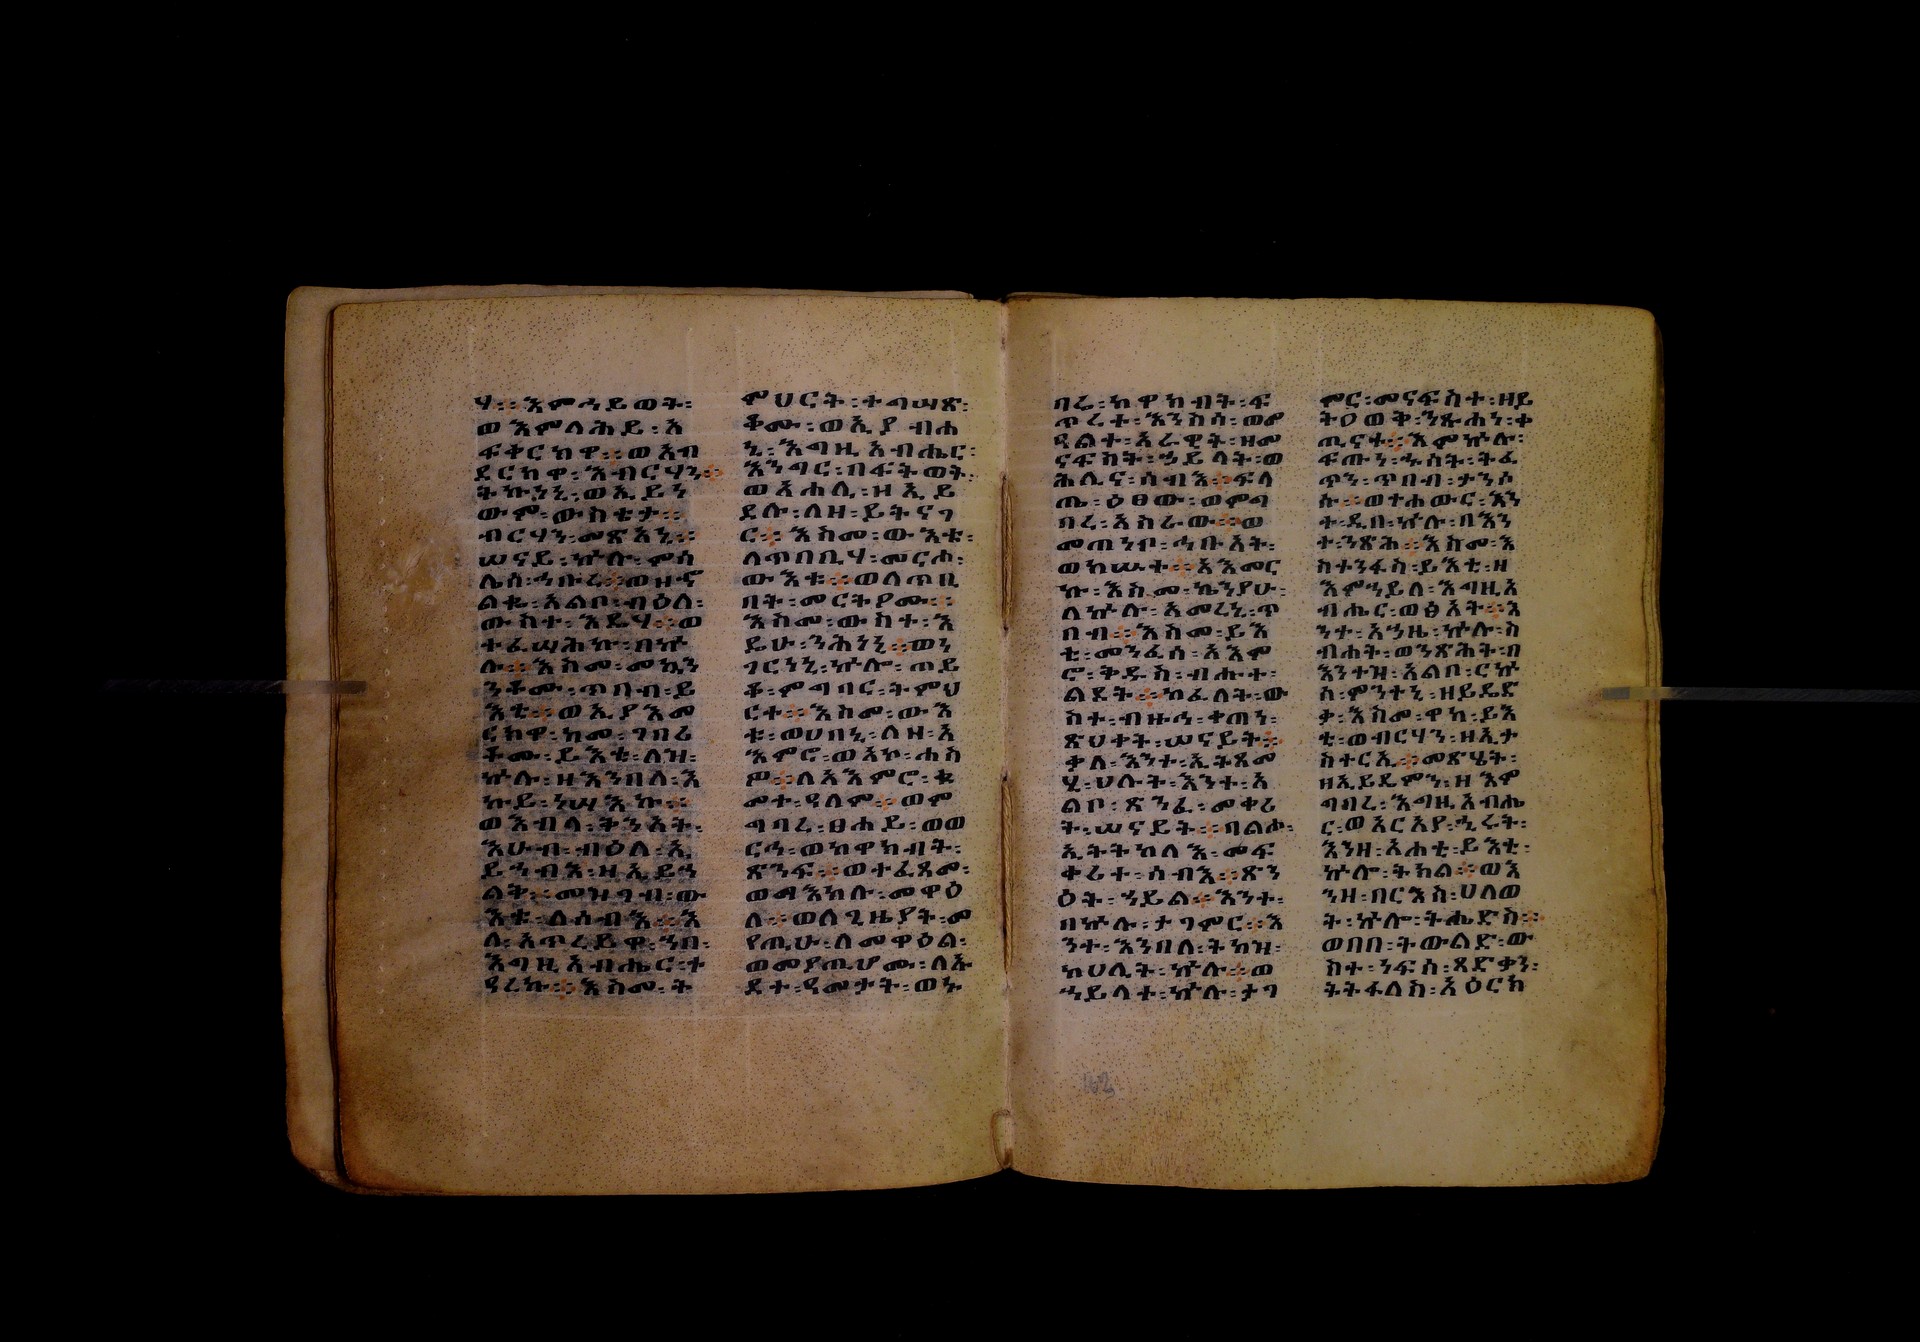 ሃ፡፡ እምሓይወት፡
ወእምላሕይ፡ አ
ፍቀርክዋ፡፡ ወአብ
ደርክዋ፡ እብርሃን፡፡
ትኩነኒ፡ ወኢይነ
ውም፡ ውስቲታ፡፡
ብርሃን፡ መጽአኒ፡፡
ሠናይ፡ ኵሉ፡ ምስ
ሌሃ፡ ኅቡረ፡፡ ወዘኖ
ልቁ፡ አልቦ፡ ብዕለ፡
ውስተ፡ እዴሃ፡፡ ወ
ተፈሣሕኩ፡ በኵ
ሉ፡፡ እስመ፡ መኰን
ንቶሙ፡ ጥበብ፡ ይ
እቲ፡፡ ወኢያእመ
ርክዋ፡ ከመ፡ ገባሪ
ቶሙ፡ ይእቲ፡ ለዝ፡
ኵሉ፡ ዘእንበለ፡ እ
ኩይ፡ ነሣእኩ፡፡
ወእብላ፡ ቅንአት፡
እሁብ፡ ብዕለ፡ ኢ
ይኀብእ፡ ዘኢይኀ
ልቅ፡፡ መዝገብ፡ ው
እቱ፡ ለሰብእ፡፡ እ
ለ፡ አጥረይዋ፡ ኀበ፡
እግዚአብሔር፡ ተ
ዓረኩ፡፡ እስመ፡ ት
ምህርት፡ ተጋሣጽ፡
ቶሙ፡ ወኢያብሐ
ኒ፡ እግዚአብሔር፡
እንግር፡ በፍትወት፡
ወእሐሊ፡ ዘኢይ
ደሉ፡ ለዘ፡ ይትናገ
ር፡፡ እስመ፡ ውእቱ፡
ለጥበቢሃ፡ መርሐ፡
ውእቱ፡፡ ወለጥቢ
በት፡ መርትዖሙ፡፡
እስመ፡ ውስተ፡ እ
ዴሁ፡ ንሕነኒ፡፡ ወነ
ገርነኒ፡ ኵሎ፡ ጠይ
ቆ፡ ምግባር፡ ትምህ
ርተ፡፡ እስመ፡ ውእ
ቱ፡ ወሀበኒ፡ ለዘ፡ አ
እምሮ፡ ወእኮ፡ ሐስ
ም፡፡ ለአእምሮ፡ ቁ
መተ፡ ዓለም፡፡ ወም
ግባረ፡ ፀሐይ፡ ወወ
ርኅ፡ ወከዋክብት፡
ጽንፍ፡፡ ወተፈጸመ፡
ወማእከሉ፡ መዋዕ
ል፡፡ ወለጊዜያት፡ መ
የጢሁ፡ ለመዋዕል፡
ወመያጢሆሙ፡ ለእ
ደተ፡ ዓመታት፡ ወኑ
ባሬ፡ ከዋክብት፡ ፍ
ጥረተ፡ እንስሳ፡ ወመ
ዓልተ፡ አራዊት፡ ዘመ
ናፍስት፡ ኃይላት፡ ወ
ሕሊና፡ ሰብእ፡፡ ፍላ
ጤ፡ ዕፀው፡ ወምግ
ባረ፡ አስራው፡፡ ወ
መጠነዞ፡ ኅቡአት፡
ወክሡት፡፡ አእመር
ኩ፡ እስመ፡ ኬንያሁ፡
ለኵሉ፡ አመረኒ፡ ጥ
በብ፡፡ እስመ፡ ይእ
ቲ፡ መንፈሰ፡ አእም
ሮ፡ ቅዱስ፡ ብሑተ፡
ልደት፡፡ ከፈለት፡ ው
ስተ፡ ብዙኅ፡ ቀጠን፡
ጽህተት፡ ሠናይት፡፡
ቃለ፡ እንተ፡ ኢትጸመ
ሂ፡ ህሉት፡ እንተ፡ አ
ልቦ፡ ጽንፈ፡ መቀሪ
ት፡ ሠናይት፡፡ ባልሐ፡
ኢትትከላእ፡ መፍ
ቀሪተ፡ ሰብእ፡፡ ጽን
ዕት፡ ኀይል፡፡ እንተ፡
በኵሉ፡ ታገምር፡፡ እ
ንተ፡ እንበለ፡ ትከዝ፡
ከሀሊት፡ ኵሉ፡፡ ወ
ኀይላተ፡ ኵሉ፡ ታገ
ምር፡ መናፍስተ፡ ዘይ
ትዐወቅ፡ ንጹሐነ፡ ቀ
ጢናተ፡፡ እምኵሉ፡
ፍጡነ፡ ሑስት፡ ትፈ
ጥን፡ ጥበብ፡ ታንሶ
ሱ፡፡ ወተሐውር፡ እን
ተ፡ ዲበ፡ ኵሉ፡ በእን
ተ፡ ንጽሕ፡፡ እስመ፡ እ
ስተንፋስ፡ ይእቲ፡ ዘ
እምኀይለ፡ እግዚአ
ብሔር፡ ወፅአት፡፡ እ
ንተ፡ አኃዜ፡ ኵሉ፡ ስ
ብሐት፡ ወንጽሕት፡ በ
እንተዝ፡ አልቦ፡ ርኵ
ስ፡ ምንተኒ፡ ዘይዴድ
ቃ፡ እስመ፡ ዋካ፡ ይእ
ቲ፡ ወብርሃን፡ ዘኢታ
ስተርኢ፡፡ መጽሄት፡
ዘኢይደምን፡ ዘእም
ግባረ፡ እግዚአብሔ
ር፡ ወአርአያ፡ ኂሩት፡
እንዘ፡ አሐቲ፡ ይእቲ፡
ኵሎ፡ ትክል፡፡ ወእ
ንዘ፡ ብርእስ፡ ሀለወ
ት፡ ኵሎ፡ ትሔድስ፡፡
ወበበ፡ ትውልድ፡ ው
ስተ፡ ነፍሰ፡ ጻድቃን፡
ትትፋለስ፡ አዕርክ